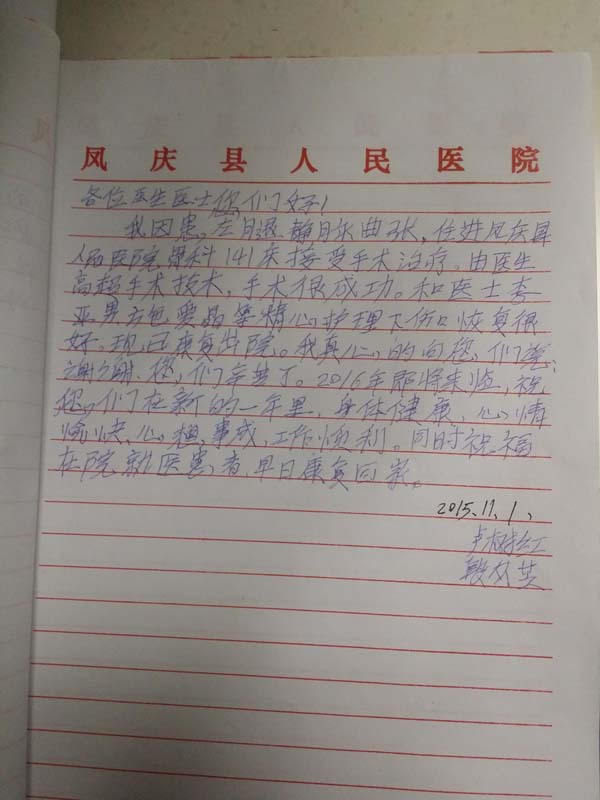 凤庆县人民医院
各位医生医士您们好!
我因患,左月退静脉曲张,住进凤庆县
人民医院骨科141床接受手术治疗。由医生
高超手术技术,手术很成功。和医士李
亚男、方艳、晶等精心护理下伤口恢复很
好。现已康复出院。我真心的向您们说:
谢谢,您们辛苦了。2016年即将来临,祝
您们在新的一年里,身体健康、心情
愉快、心想事成,工作顺利。同时祝福
在院就医患者,早日康复回家。
2015.11.1、
卢树红
段